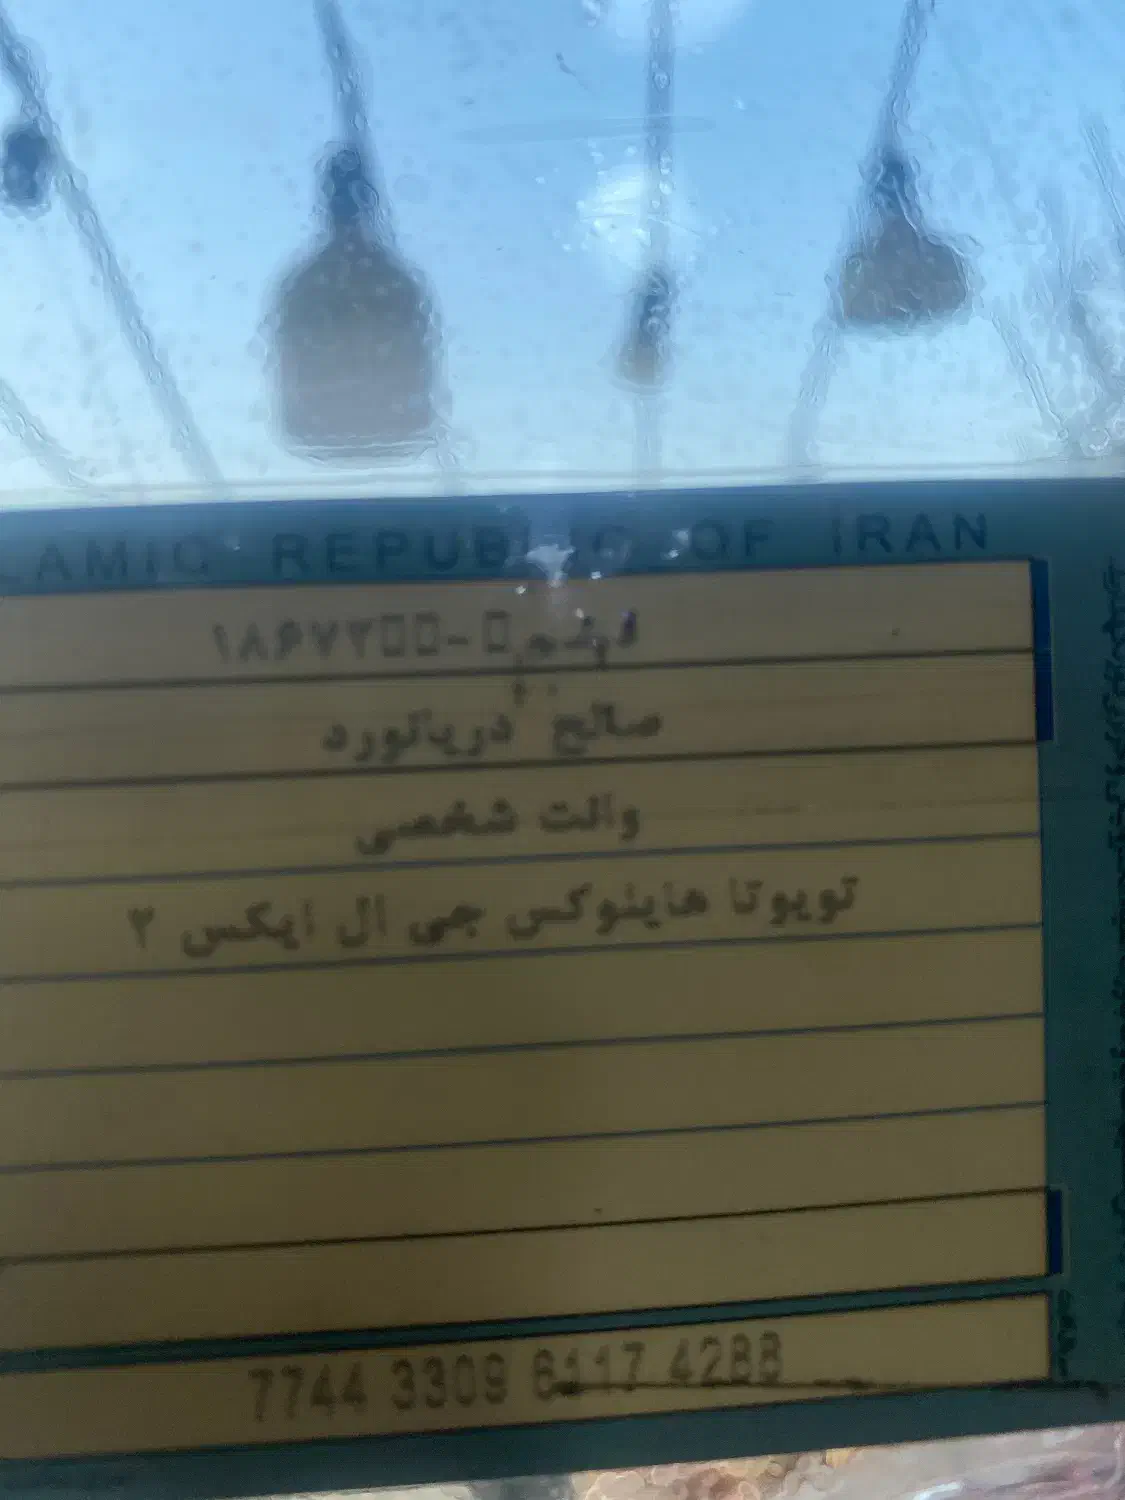 LAMIC REPUBLIC OF IRAN
۱۸۶۷۲▯▯-▯
صالح دریانورد
وانت شخصی
تویوتا هاینوکس جی ال ایکس ۲
7744 3309 6117 4288